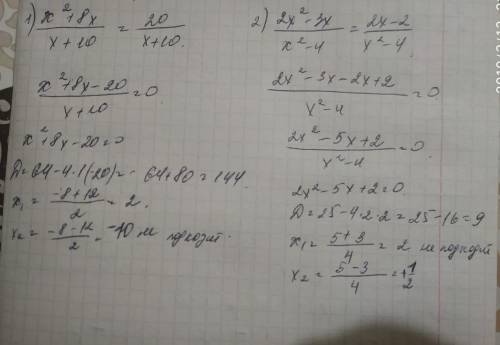 1) (x²+8x)/(x+10) = 20/(x+10).
(x²+8x-20)/(x+10) = 0
x²+8x-20=0
D=64-4·1(20)= 64+80=144.
x₁ = (-8+12)/2 = 2.
x₂ = (-8-12)/2 = -10 не подходит.
2) (2x²-3x)/(x²-4) = (2x-2)/(x²-4).
(2x²-3x-2x+2)/(x²-4) = 0.
(2x²-5x+2)/(x²-4) = 0.
2x²-5x+2=0.
D=25-4·2·2=25-16=9
x₁ = (5+3)/4 = 2 не подходит
x₂ = (5-3)/4 = +1/2